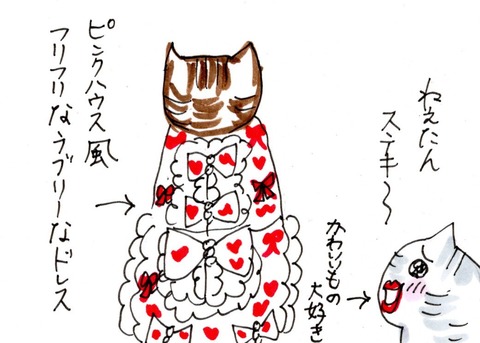 ピンクハウス風
フリフリなラブリーなドレス
ねえたん
ステキ〜
かわいいもの
大好き